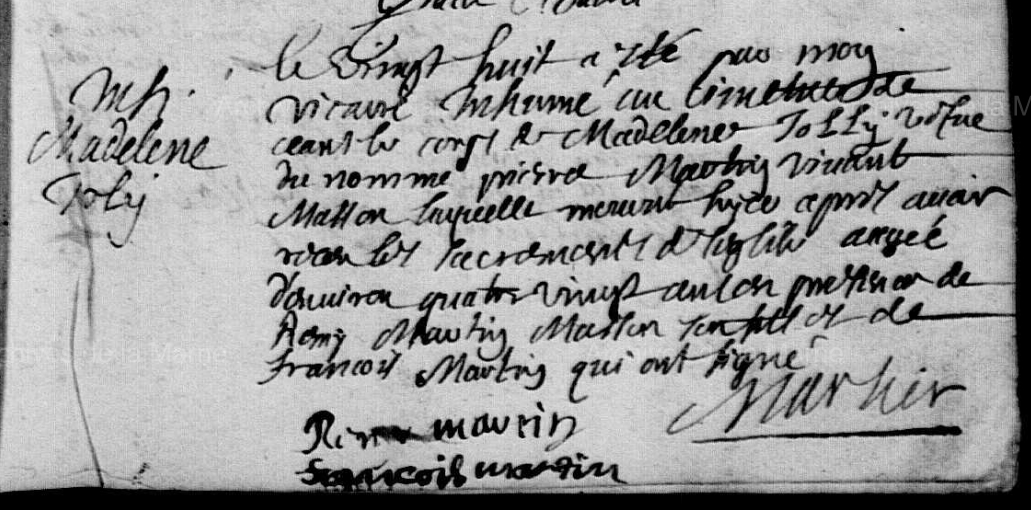 le vingt huit a ete par moy
vicaire Inhumé au cimettiere de
ceant le corps de Madelene Jolly vefue
du nomme pierre Martin vivant
Masson laquelle mourut hyer apres avoir
receu les sacrements de leglise aagée
denviron quatre vingt ans en presence de
Remy Martin Masson son fils et de
francois Martin qui ont signé
Inh.
Madelene
Joly
Marhier
Remy martin
francois martin